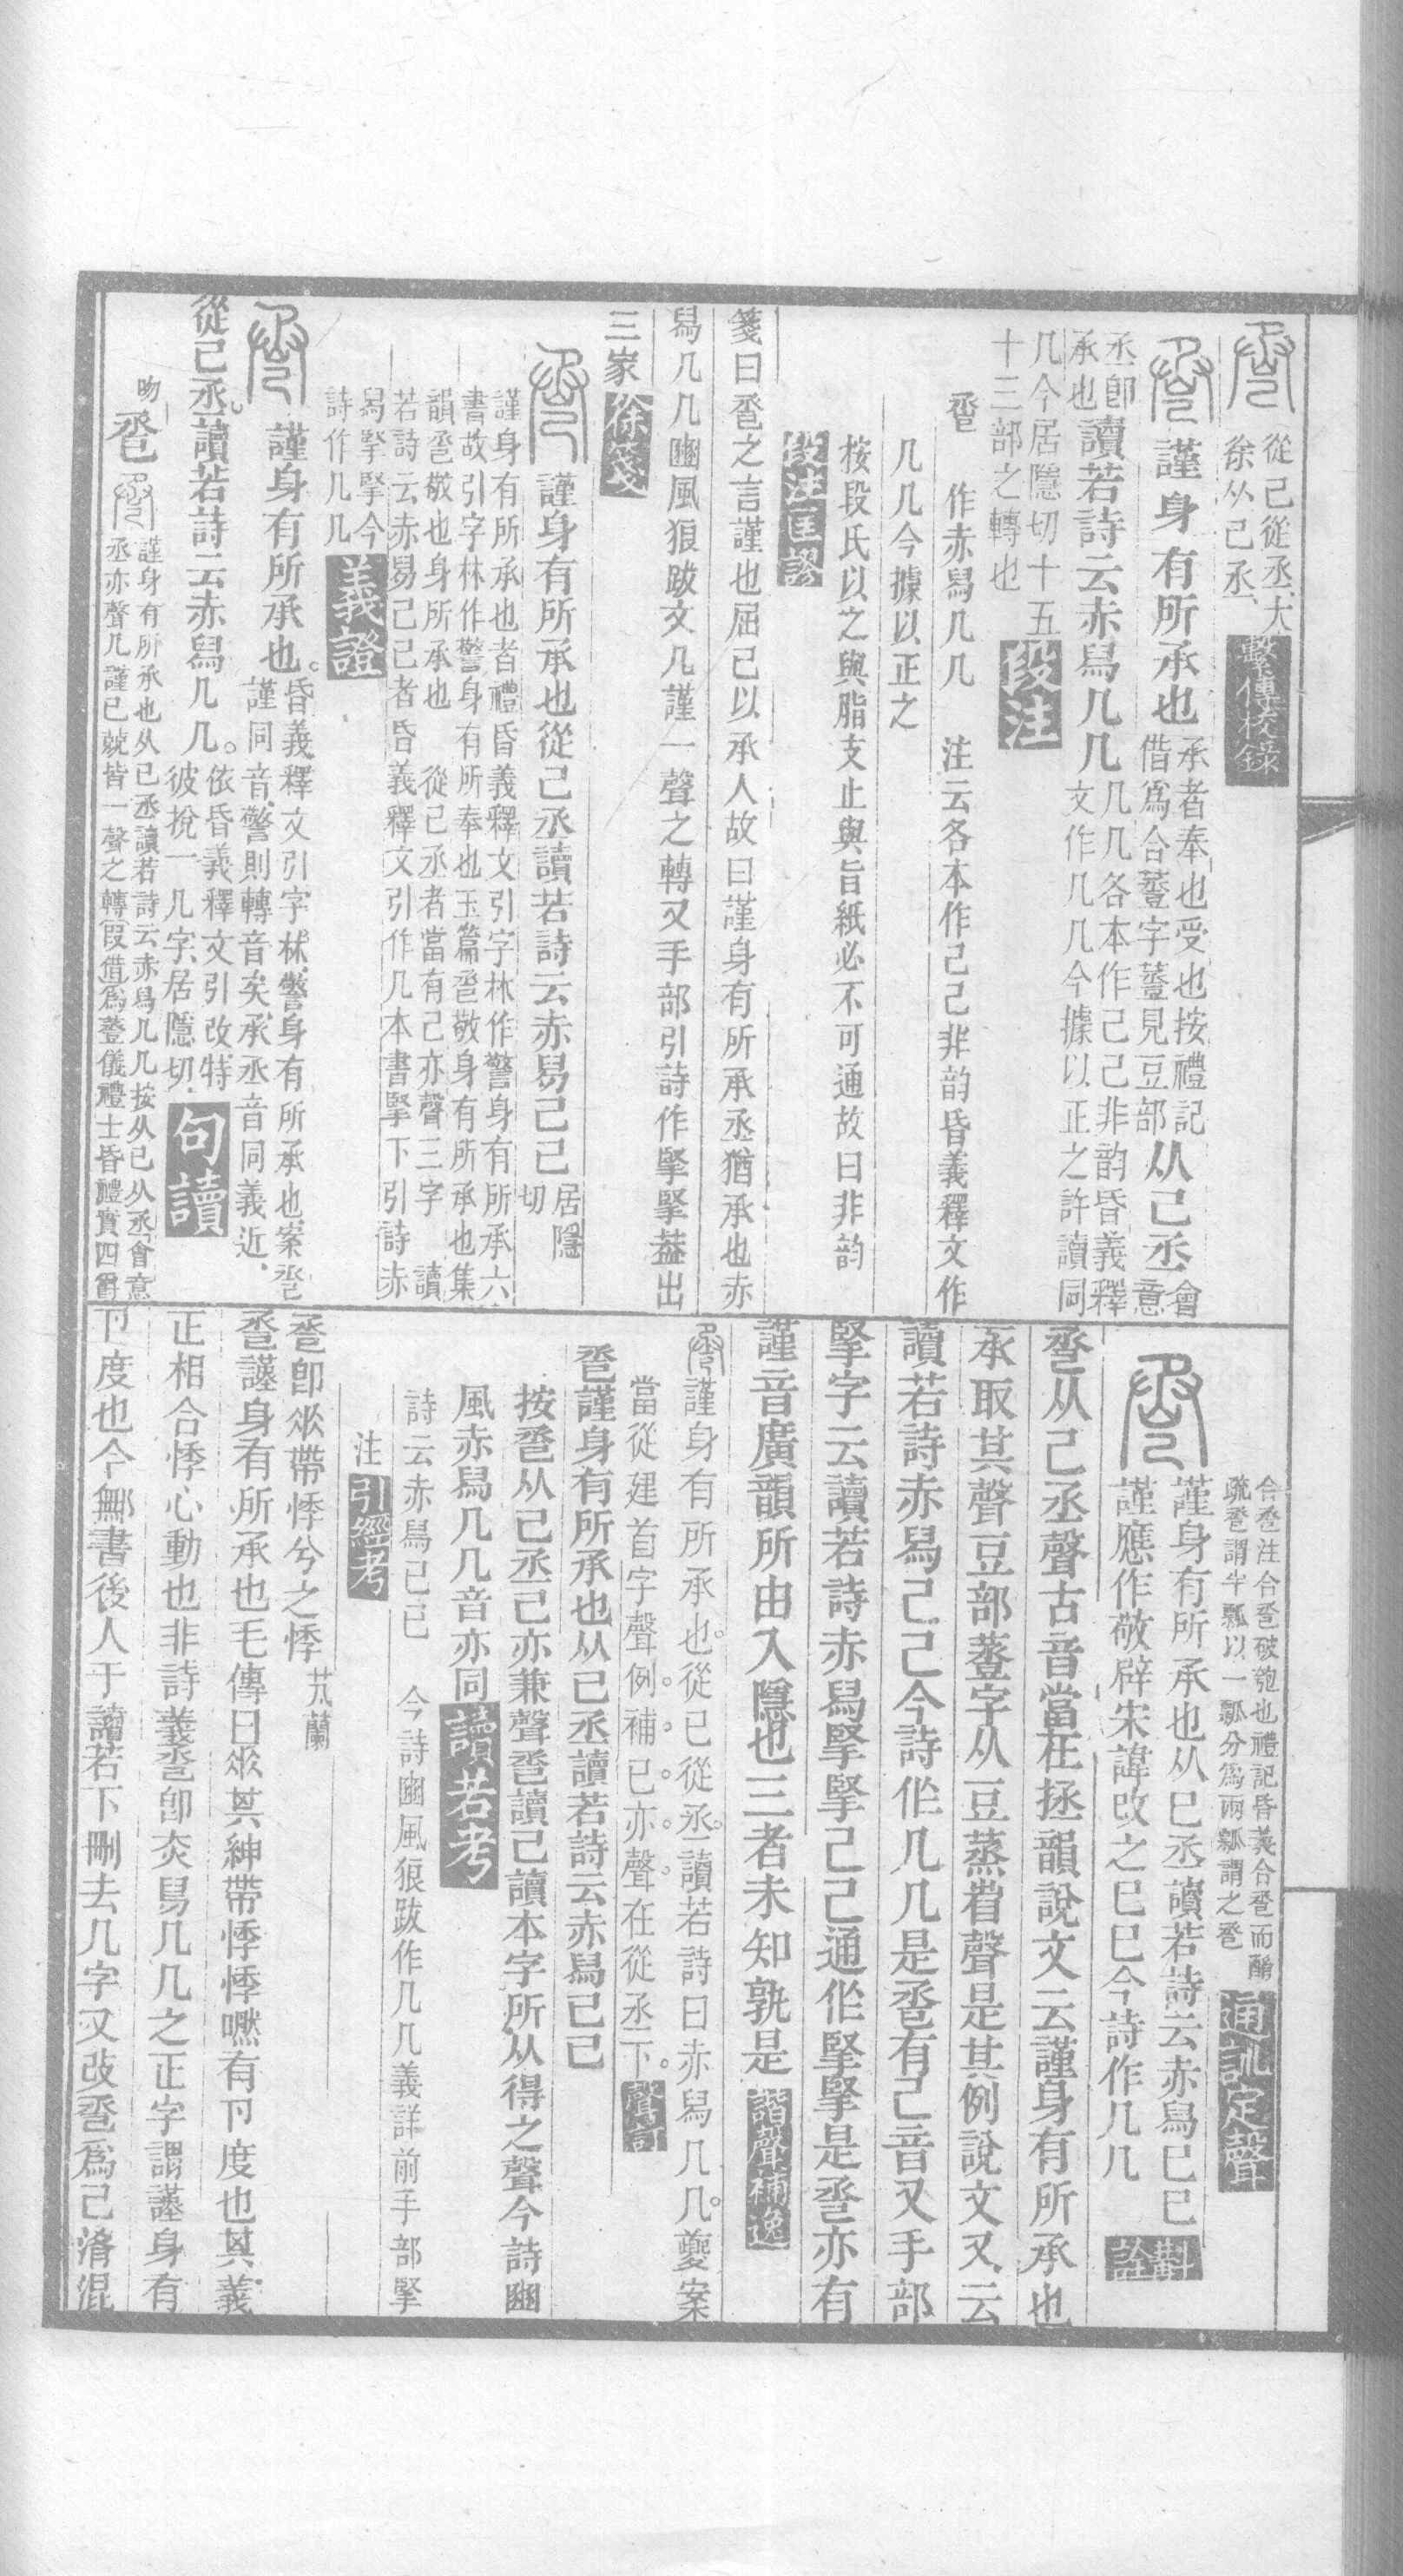 從己從丞大
徐从己丞
繫傳校錄
謹身有所承也
承者奉也受也按禮記
借爲合𧯷字𧯷見豆部
从己丞
會意
丞卽
承也
讀若詩云赤舄几几
几几各本作己己非韵昏義釋
文作几几今據以正之許讀同
几今居隱切十五
十三部之轉也
段注
巹 作赤舄几几 注云各本作己己非韵昏義釋文作
几几今據以正之
按段氏以之與脂支止與旨紙必不可通故曰非韵
段注匡謬
箋曰巹之言謹也屈己以承人故曰謹身有所承丞猶承也赤
舄几几豳風狼跋文几謹一聲之轉又手部引詩作掔掔葢出
三家
徐箋
謹身有所承也從己丞讀若詩云赤舄己己
居隱
切
謹身有所承也者禮昏義釋文引字林作𧫴身有所承六
書故引字林作𧫴身有所奉也玉篇巹敬身有所承也集
韻巹敬也身所承也 從己丞者當有己亦聲三字 讀
若詩云赤舄己己者昏義釋文引作几本書掔下引詩赤
舄掔掔今
詩作几几
義證
謹身有所承也。
昏義釋文引字林、𧫴身有所承也、案巹
謹同音、𧫴則轉音矣、承丞音同義近、
從己丞。讀若詩云赤舄几几。
依昏義釋文引改、特
彼挩一几字、居隱切、
句讀
吻 巹
謹身有所承也从己丞讀若詩云赤舄几几按从己从丞會意
丞亦聲几謹己兢皆一聲之轉叚借爲𧯷儀禮士昏禮實四爵
合巹注合巹破匏也禮記昏義合巹而酳
疏巹謂半瓢以一瓠分爲兩瓢謂之巹
通訓定聲
謹身有所承也从巳丞讀若詩云赤舄巳巳
謹應作敬辟宋諱改之巳巳今詩作几几
斠詮
巹从己丞聲古音當在拯韻說文云謹身有所承也
承取其聲豆部𧯷字从豆蒸省聲是其例說文又云
讀若詩赤舄己己今詩作几几是巹有己音又手部
掔字云讀若詩赤舄掔掔己己通作掔掔是巹亦有
謹音廣韻所由入隱也三者未知孰是
諧聲補逸
謹身有所承也。從己從丞。讀若詩曰赤舄几几。夔案
當從建首字聲例。補。己。亦。聲。在從丞下。
聲訂
巹謹身有所承也从己丞讀若詩云赤舄己己
按巹从己丞己亦兼聲巹讀己讀本字所从得之聲今詩豳
風赤舄几几音亦同
讀若考
詩云赤舄己己 今詩豳風狼跋作几几義詳前手部掔
注
引經考
巹卽𠂹帶悸兮之悸
芄蘭
巹謹身有所承也毛傳曰𠂹其紳帶悸悸嘫有卪度也其義
正相合悸心動也非詩義巹卽赤舄几几之正字謂謹身有
卪度也今無書後人于讀若下刪去几字又攺巹爲己淆混